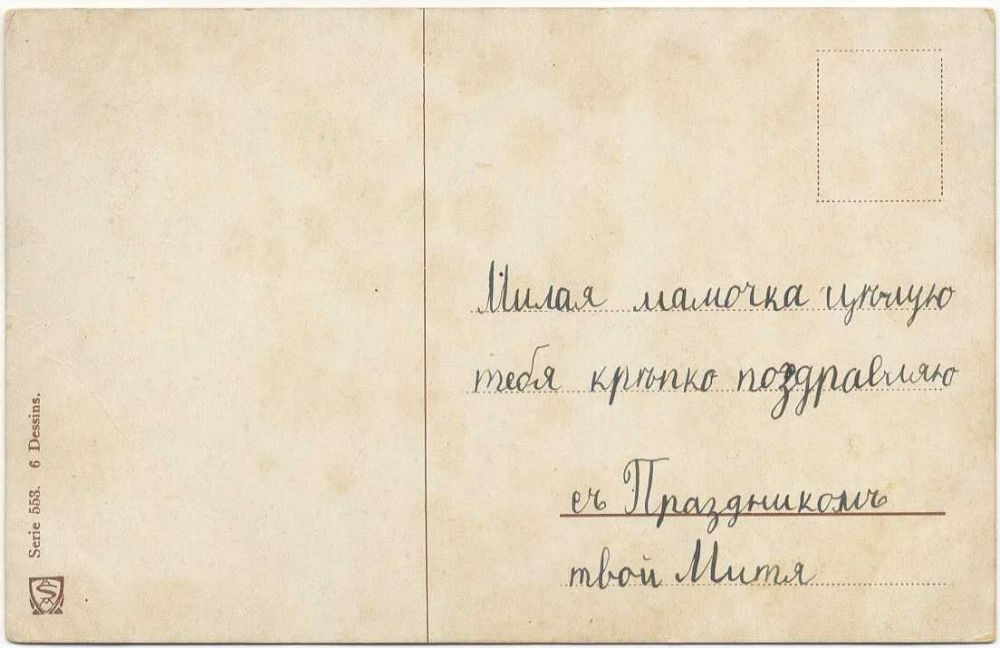 Милая мамочка цѣлую
тебя крѣпко поздравляю
съ Праздникомъ
твой Митя
Serie 553. 6 Dessins.